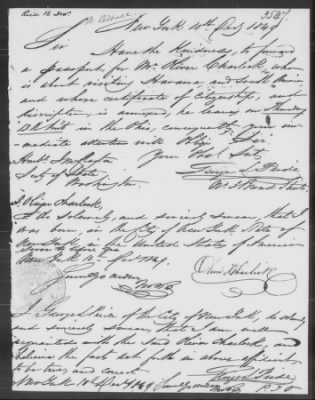 Recd 12 Decr.
3547.
New York 10th Decr 1849
Sir
Have the Kindness, to forward
a passport, for Mr. Oliver Charlick, who
is about visiting Havana, and South America
and whose certificate of Citizenship, and
description, is annexed, he leaves on Thursday
13th Inst in the Ohio, consequently your im-
mediate attention will oblige Sir
Your Obt. Servt.
George Pride
Secty of State
Washington
I Oliver Charlick,
do solemnly, and sincerely swear, that I
was born, in the City of New York State of
New York, in the United States of America
Sworn to before me
New York 10th Dec 1849.
Oliver Charlick
I George Pride of the City of New York, do solemnly
and sincerely swear, that I am well
acquainted with the said Oliver Charlick, and
believe the fact set forth in above affidavit
to be true, and correct
New York 10th Decr 1849
George Pride